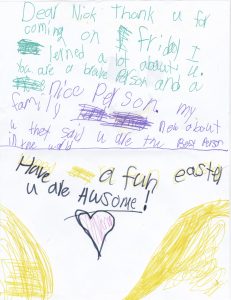 Dear Nick thank u for
coming on friday I
lerned a lot about u.
You are a brave Person and a
nice Person. my
family new about
u they said u are the Best Person
in the world
Have a fun easter
u are Awsome!